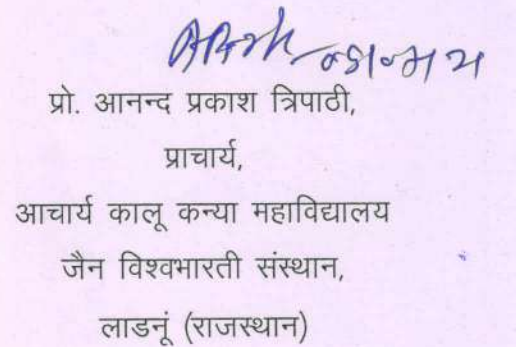 प्रो. आनन्द प्रकाश त्रिपाठी,
प्राचार्य,
आचार्य कालू कन्या महाविद्यालय
जैन विश्वभारती संस्थान,
लाडनूं (राजस्थान)